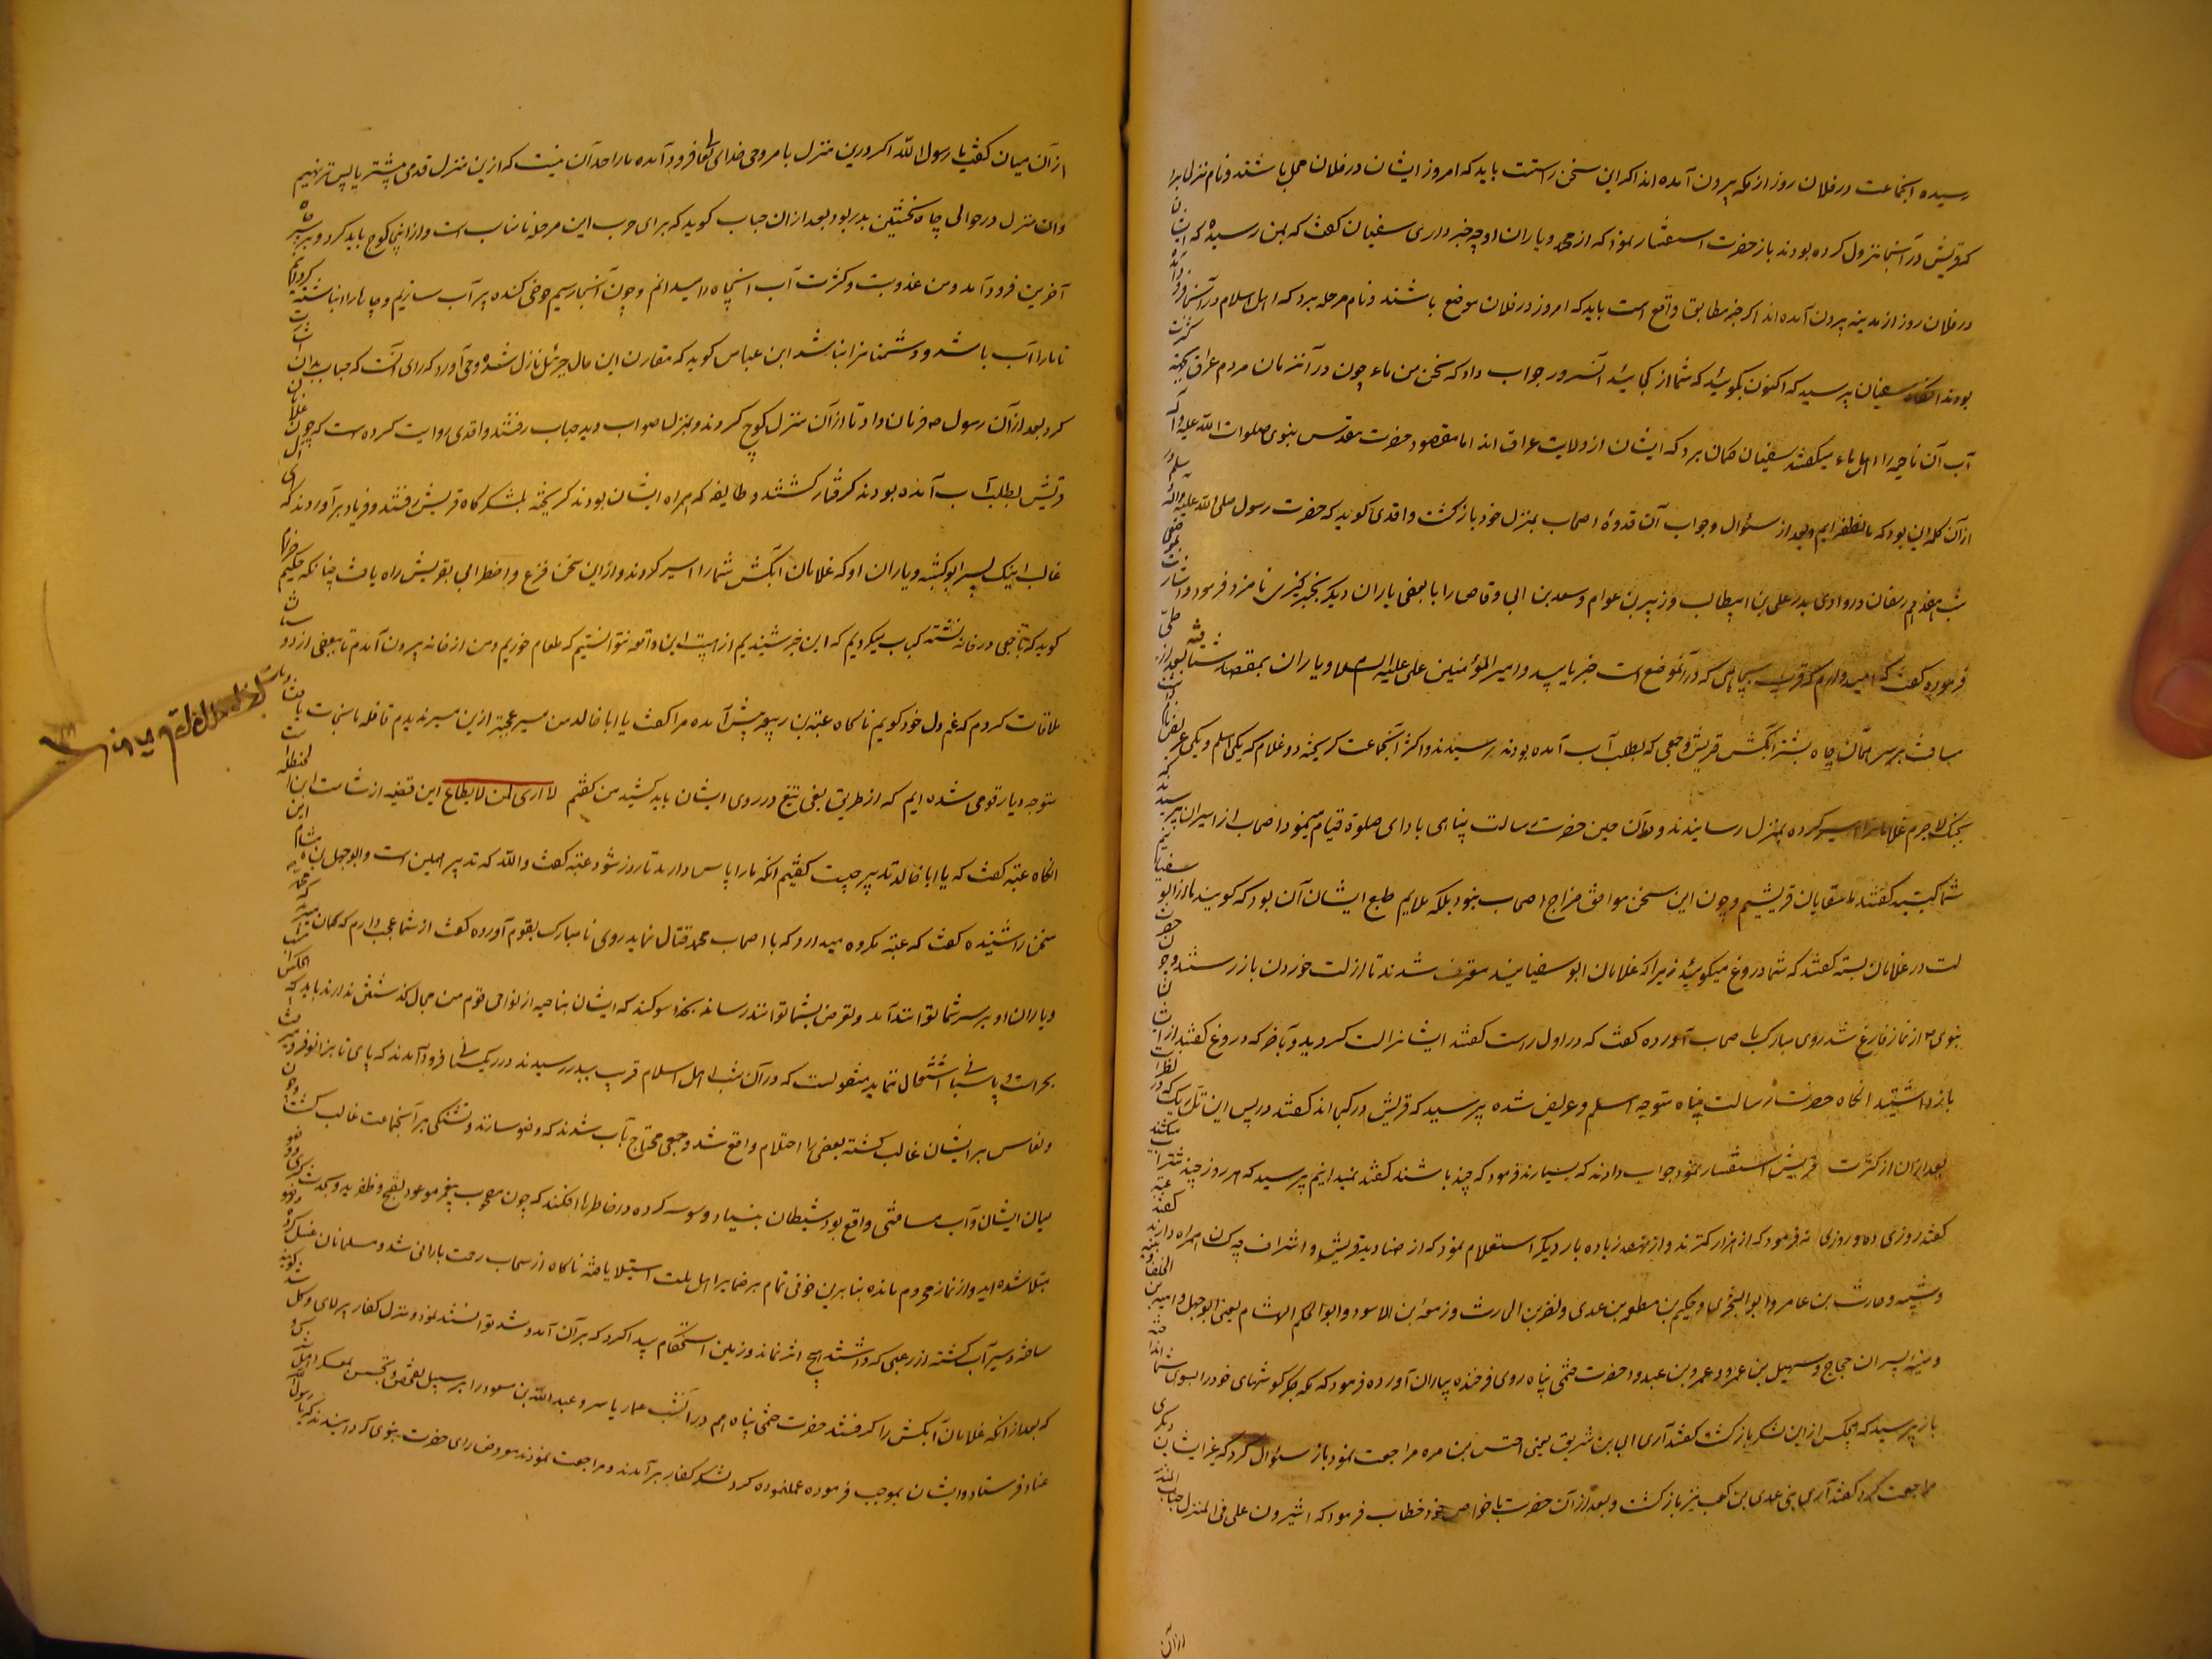 رسیده آنجماعت در فلان روز از مکه بیرون آمده اند اکر این سخن راستت باید که امروز ایشان در فلان محل باشند و نام منزل برد
که قریش در آنجا نزول کرده بودند باز حضرت استفسار نمود که از محمد و یاران او چه خبر داری سفیان کفت که بمن رسیده که ایشان
در فلان روز از مدینه بیرون آمده اند اکر خبر مطابق واقع است باید که امروز در فلان موضع باشند و نام مرحله برد که اهل اسلام در آنجا فرود آمده
بودند آنکاه سفیان پرسید که اکنون بکوئید که شما از کجائید آنسرور جواب داد که نحن من ماء چون در آنزمان مردم عراق بجهة کثرت
آب آن ناحیه را اهل ماء میکفتند سفیان کمان برد که ایشان از ولایت عراق اند اما مقصود حضرت مقدس نبوی صلوات الله علیه و آله
از آن کلمه این بود که ما نطفه ایم و بعد از سئوال و جواب آن قدوهٔ اصحاب بمنزل خود بازکشت واقدی کوید که حضرت رسول صلی الله علیه و اله وسلم در
شب هفدهم رمضان در وادی بدر علی بن ابیطالب و زبیر بن عوام و سعد بن ابی وقاص را با بعضی یاران دیکر بخبر کیری نامزد فرمود و اشارت
فرموده کفت که امیدوارم که قرب بچاهی که در آنموضع است خبر یابید و امیر المؤمنین علی علیه السلام و یاران بمقصد شتافته بعد از طی
مسافت بر سر همان چاه بشتر آبکش قریش و جمعی که بطلب آب آمده بودند رسیدند و اکثر آنجماعت کریخته دو غلام که یکی اسلم و یکی عریض نام داشت
بچنک لاجرم غلامانرا اسیر کرده بمنزل رسانیدند و در آن حین حضرت رسالت پناهی بادای صلوة قیام مینمود اصحاب از اسیران پرسیدند که
شما کیستید کفتند ما سقایان قریشیم و چون این سخن موافق مزاج اصحاب نبود بلکه ملایم طبع ایشان آن بود که کویند ما از ابو سفیانیم
لت در غلامان بسته کفتند که شما دروغ میکوئید زیرا که غلامان ابو سفیانیند معترف شدند تا از لت خوردن باز رستند و چون حضرت
نبوی ص از نماز فارغ شد روی مبارک باصحاب آورده کفت که در اول راست کفتند ایشانرا لت کردید و بآخر که دروغ کفتند از ایشان
باز داشتید انکاه حضرت رسالت پناه متوجه اسلم و عریض شده پرسید که قریش در کجا اند کفتند در پس این تل ریک که در نظر است
بعد از آن از کثرت قریش استفسار نمود جواب دادند که بسیارند فرمود که چند باشند کفتند نمیدانیم پرسید که هر روز چند شتر میکشند
کفتند روزی ده و روزی نه فرمود که از هزار کمترند و از نهصد زیاده بار دیکر استعلام نمود که از صنادید قریش و اشراف چه کسان همراه دارند کفتند عتبه
و شیبه و حارث بن عامر و ابو البختری و حکیم بن حزام و طعیمه بن عدی و نضر بن الحارث و زمعه بن الاسود و ابو الحکم بن هشام یعنی ابوجهل و امیه بن خلف
و منبه پسران حجاج و سهیل بن عمرو و عمرو بن عبدود حضرت ختمی پناه روی فرخنده بیاران آورده فرمود که مکه جکر کوشهای خود را بسوی شما انداخته
باز پرسید که هیچکس از این لشکر بازکشت کفتند آری ابی بن شریق یعنی اخنس بن مره مراجعت نمود باز سئوال کرد که غیر ایشان دیکری
مراجعت کرد کفتند آری بنی عدی بن کعب نیز بازکشت و بعد از آن حضرت با خواص خود خطاب فرمود که اشیرون علی فی المنزل حباب بن المنذر
از آن
از آن میان کفت یا رسول الله اکر درین منزل بامر وحی خدای تعالی فرود آمده ما را حد آن نیست که ازین منزل قدمی پیشتر یا پس تر نهیم
و آن منزل در حوالی چاه نخستین بدر بود بعد از ان حباب کوید که برای حرب این مرحله نامناسب است و از اینجا کوچ باید کرد و بر سر چاه
آخرین فرود آمد و من عذوبت و کثرت آب انچاه را میدانم و چون آنجا رسیم حوضی کنده پر آب سازیم و چاهها را انباشته کردانیم
تا ما را آب باشد و دشمنانرا نباشد ابن عباس کوید که مقارن این حال جبرئیل نازل شده وحی آورد که رای آنست که حباب بدان اشارت
کرد بعد از آن رسول ص فرمان داد تا از آن منزل کوچ کردند و بمنزل صواب دید حباب رفتند واقدی روایت کرده است که چون غلامان
قریش بطلب آب آمده بودند کرفتار کشتند و طایفه که همراه ایشان بودند کریخته بلشکرکاه قریش رفتند و فریاد برآوردند که ای آل
غالب اینک پسر ابو کبشه و یاران او که غلامان آبکش شما را اسیر کردند و از این سخن فزع و اضطرابی بقریش راه یافت چنانکه حکیم حزام
کوید که با جمعی در خانه نشسته کباب میکردیم که این خبر شنیدیم از هیبت این واقعه نتوانستیم که طعام خوریم و من از خانه بیرون آمدم تا ببعضی از دوستان
ملاقات کردم که غم دل خود کویم ناکاه عتبه بن ربیعه پیش آمده مرا کفت یا ابا خالد من مسیر عجبتر ازین مسیر ندیدم قافله ما نجات یافت و ما
متوجه دیار قومی شده ایم که از طریق بغی تیغ در روی ایشان باید کشید من کفتم لا اری لمن لا یطاع این قضیه از شامت ابن الحنظله است
انکاه عتبه کفت که یا ابا خالد تدبیر چیست کفتم آنکه ما را پاس دارید تا روز شود عتبه کفت والله که تدبیر همین است و ابوجهل بن هشام این
سخن را شنیده کفت که عتبه مکروه میدارد که با اصحاب محمد قتال نماید روی نامبارک بقوم آورده کفت از شما عجب دارم که کمان میبرید که محمد
و یاران او بر سر شما توانند آمد و تعرض بشما توانند رسانید بخدا سوکند که ایشان بناحیه از نواحی قوم من مجال گذشتن ندارند باید که هیچکس امشب
بحراست و پاسبانی اشتغال ننماید منقولست که در آن شب اهل اسلام قریب ببدر رسیدند در ریکستانی فرود آمدند که پای تا بزانو فرو میرفت
و نعاس بر ایشان غالب کشته بعضی را احتلام واقع شد و جمعی محتاج بآب شدند که وضو سازند و تشنکی بر آنجماعت غالب کشت و چون
میان ایشان و آب مسافتی واقع بود شیطان بنیاد وسوسه کرده در خاطرها افکند که چون محبوب پیغمبر موعود بفتح و ظفرید و بحدث
مبتلا شده اید و از نماز محروم مانده بنابرین خوفی تمام بر ضمایر اهل ملت استیلا یافته ناکاه از سحاب رحمت بارانی شد و مسلمانان غسل کرده وضو
ساخته و سیر آب کشته از رعبی که داشتند هیچ اثر نماند و زمین استحکام پیدا کرد که بر آن آمد و شد توانستند نمود و منزل کفار پر لای و کل شد
که بعد از آنکه غلامان آبکش را کرفتند حضرت ختمی پناه هم در آنشب عمار یاسر و عبد الله بن مسعود را بر سبیل تفحص و تجسس بمعسکر اهل
عناد فرستاد و ایشان بموجب فرموده عملنموده کرد لشکر کفار برآمدند و مراجعت نمودند معروض رای حضرت نبوی کردانیدند که یا رسول الله